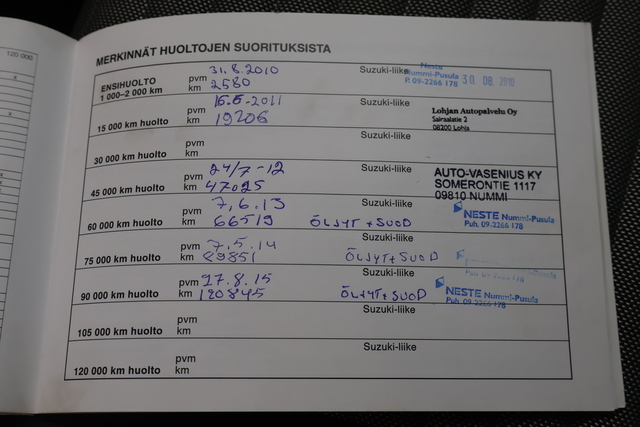 120 000
MERKINNÄT HUOLTOJEN SUORITUKSISTA
ENSIHUOLTO
1 000–2 000 km
pvm 31.8.2010
km 2580
Suzuki-liike
Neste
Nummi-Pusula
P. 09-2266 178
30. 08. 2010
15 000 km huolto
pvm 16.6-2011
km 19206
Lohjan Autopalvelu Oy
Sairaalatie 2
08200 Lohja
30 000 km huolto
pvm
km
45 000 km huolto
pvm 24/7-12
km 47025
Suzuki-liike
AUTO-VASENIUS KY
SOMERONTIE 1117
09810 NUMMI
60 000 km huolto
pvm 7.6.13
km 66519
Suzuki-liike
ÖLJYT + SUOD
NESTE Nummi-Pusula
Puh. 09-2266 178
75 000 km huolto
pvm 7.5.14
km 89851
Suzuki-liike
ÖLJYT + SUOD
Puh. 09-2266 178
90 000 km huolto
pvm 17.8.15
km 120845
Suzuki-liike
ÖLJYT + SUOD
NESTE Nummi-Pusula
Puh. 09-2266 178
105 000 km huolto
pvm
km
Suzuki-liike
120 000 km huolto
pvm
km
Suzuki-liike